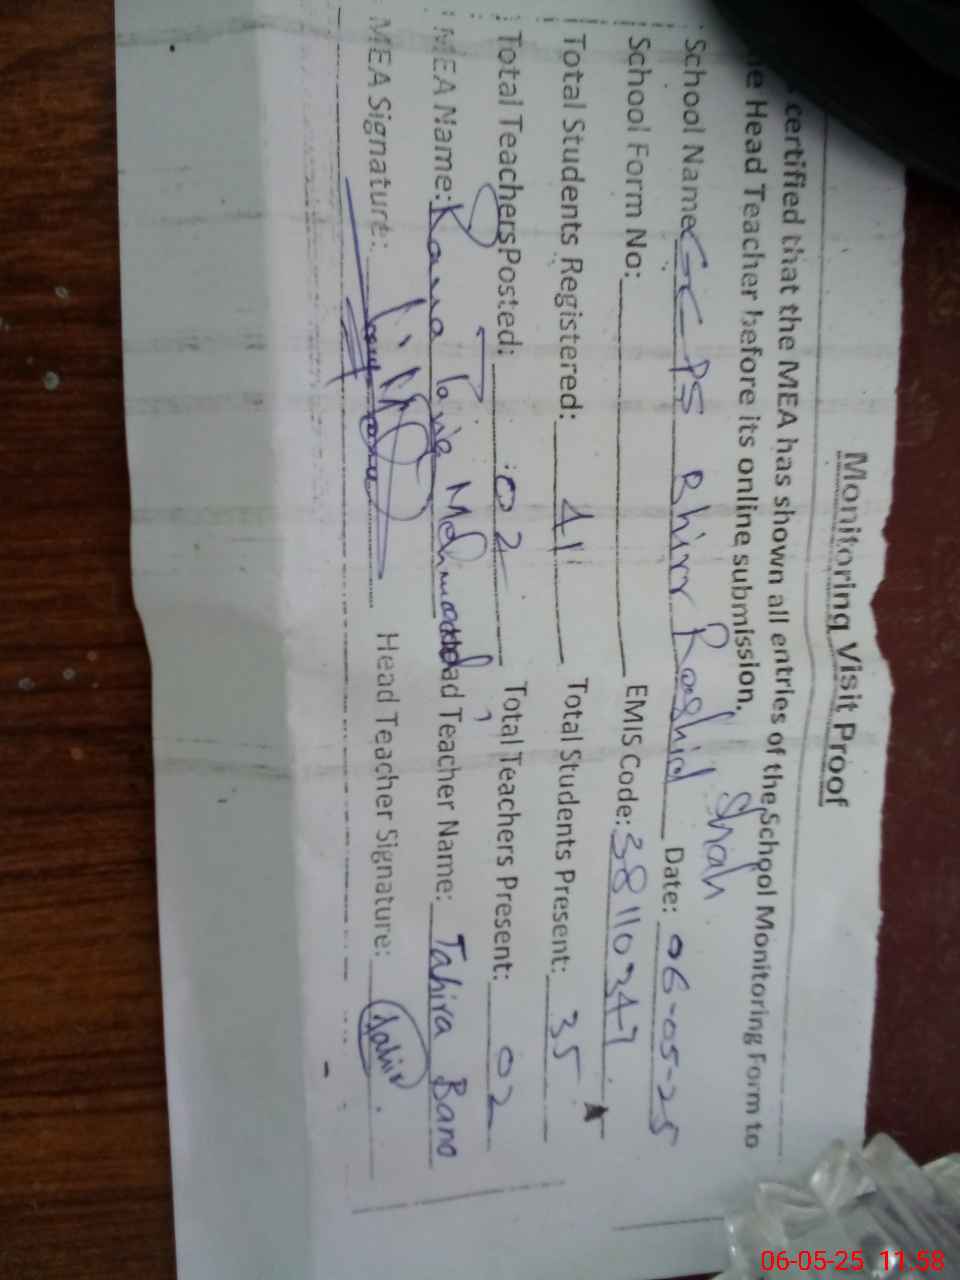 Monitoring Visit Proof
certified that the MEA has shown all entries of the School Monitoring Form to
Head Teacher before its online submission.
School Name: GCPS Bhirr Rashid Shah Date: 06-05-25
School Form No: EMIS Code: 38110347
Total Students Registered: 41 Total Students Present: 35
Total Teachers Posted: 02 Total Teachers Present: 02
MEA Name: Rana Mehmood Head Teacher Name: Tahira Bano
MEA Signature: Head Teacher Signature: Tahir
06-05-25 11:58